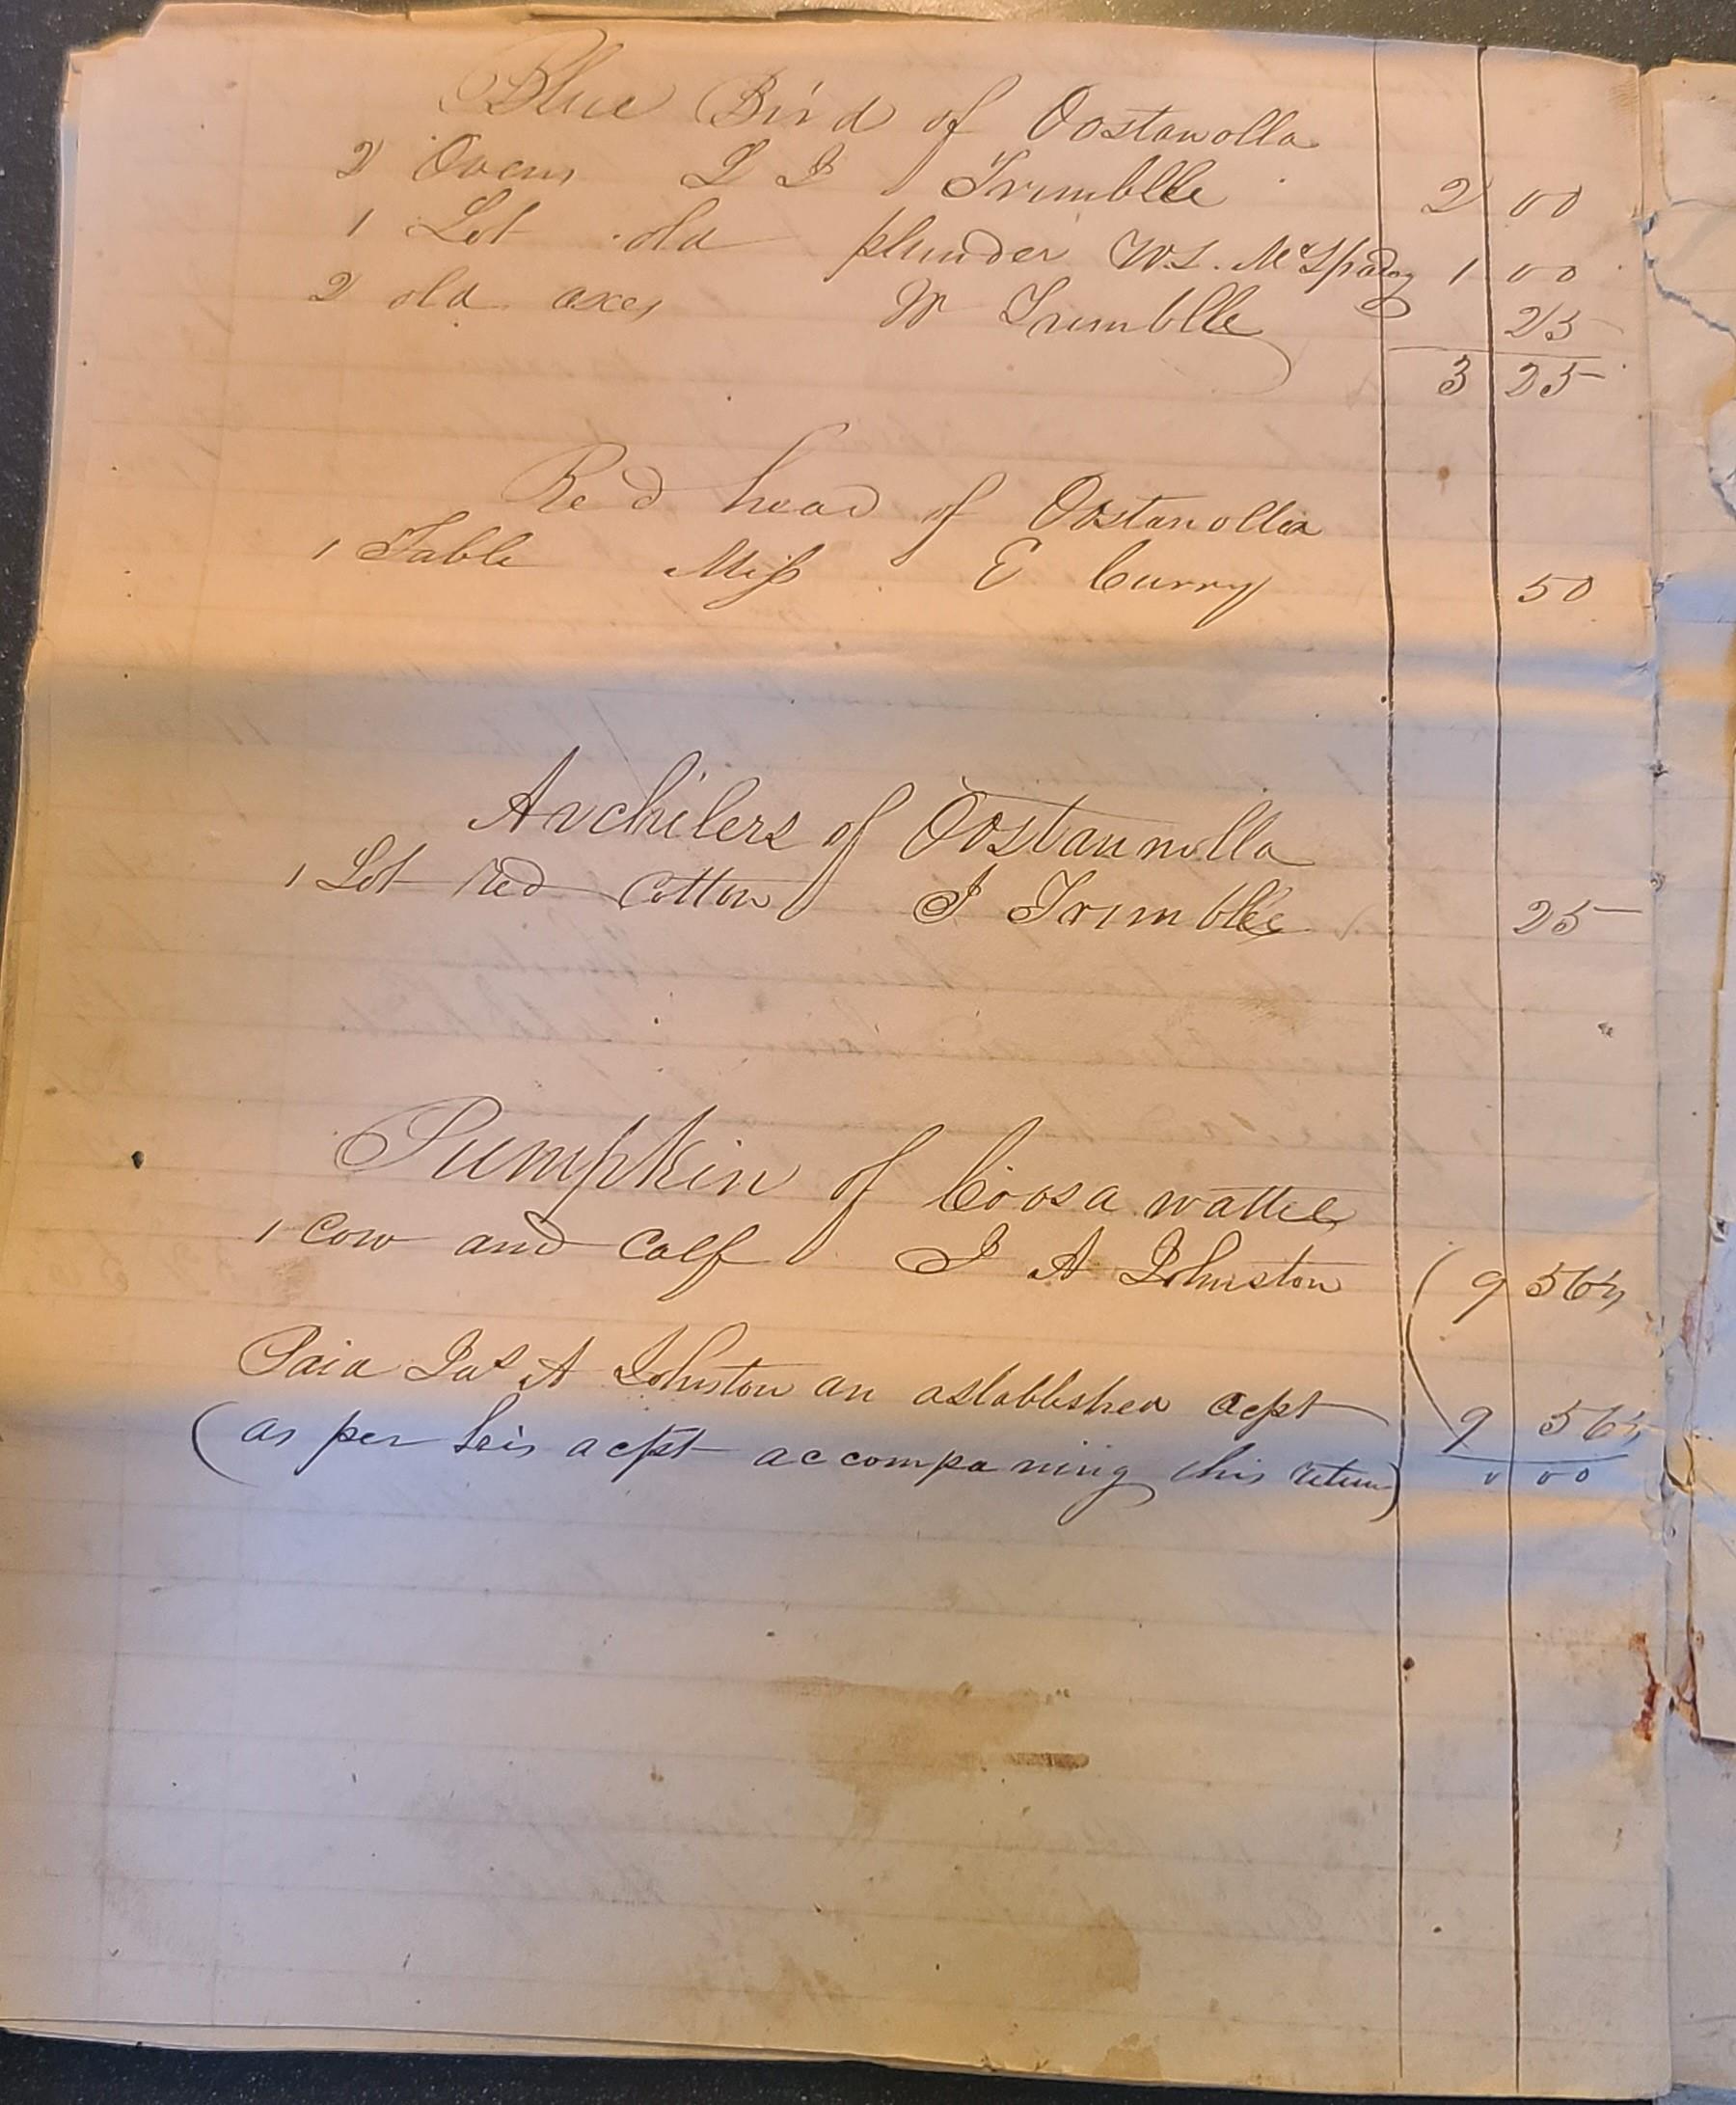 Blue Bird of Oostanolla
2 Ovens L I Trimblle 2 00
1 Lot old plunder W.L. McSpadey 1 00
2 old axes W Trimblle 25
3 25
Red head of Oostanolla
1 Table Miss E Curry 50
Archilers of Oostaunolla
1 Lot red cotton J Trimblle 25
Pumpkin of Coosawattee
1 cow and calf J A Johnston 9 56¼
Paid Jas A Johnston an astablished acpt 9 56¼
(as per his acpt accompaning this return) 0 00